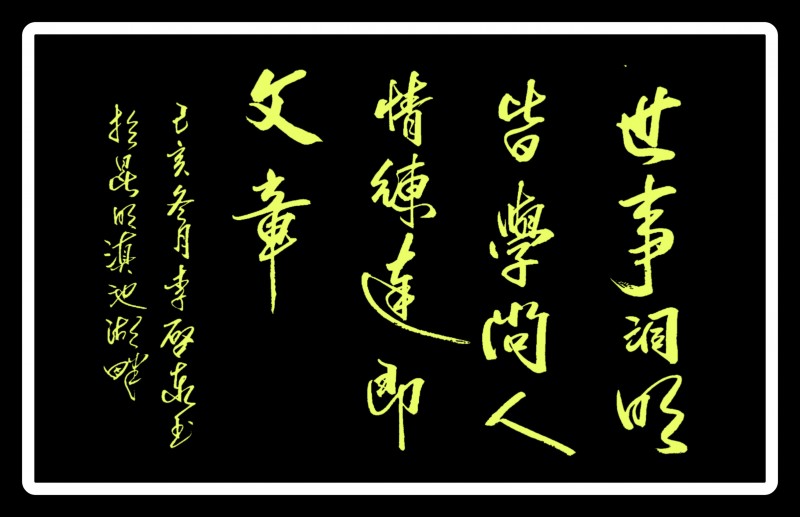 世事洞明
皆學問人
情練達即
文章
己亥冬月李啓東
於昆明滇池湖畔